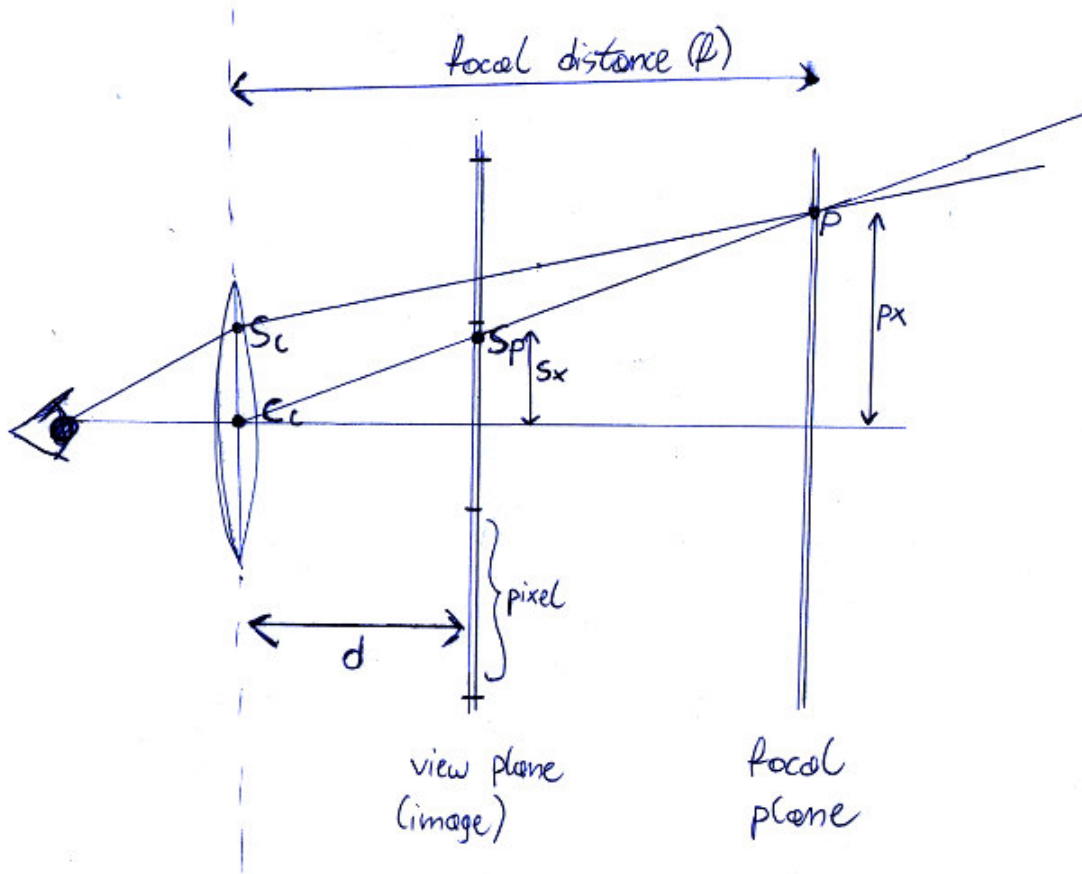 focal distance (f)
P
px
Sc
Sp
sx
Cc
pixel
d
view plane
(image)
focal
plane